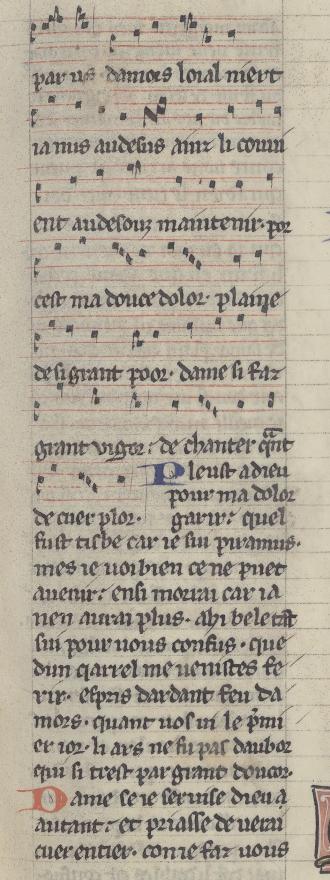 par us· damors loial niert
ia mis audesus ainz li couui
ent audesouz maintenir· por
cest ma douce dolor· plaine
desi grant poor· dame si faz
grant vigor: de chanter q̃nt
de cuer plor·
Pleust a dieu
pour ma dolor
garir: quel
fust tisbe car ie sui piramus·
mes ie uoi bien ce ne puet
auenir: ensi morrai car ia
nen aurai plus· ahi bele cōt
sui pour uous confus· que
dun qarrel me uenistes fe
rir· espris dardant feu da
mors· quant uos ui le p̃mi
er ior· li ars ne fu pas daubor
qui si trest par grant doucor·
Dame se ie seruise dieu a
autant: et priasse de uerai
cuer entier· com ie faz uous